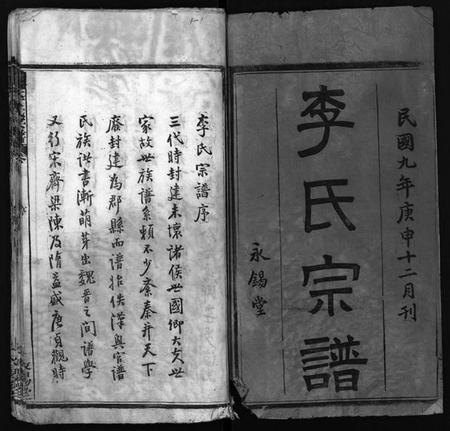 民國九年庚申十二月刊
李氏宗譜
永錫堂
李氏宗譜序
三代時封建未壞諸侯世國卿大夫世
家故世族譜系賴不少紊秦并天下
廢封建為郡縣而譜始佚漢興官譜
民族洪書漸萌芽出魏晉之間譜學
又行宋齊梁陳及隋益盛唐貞觀時